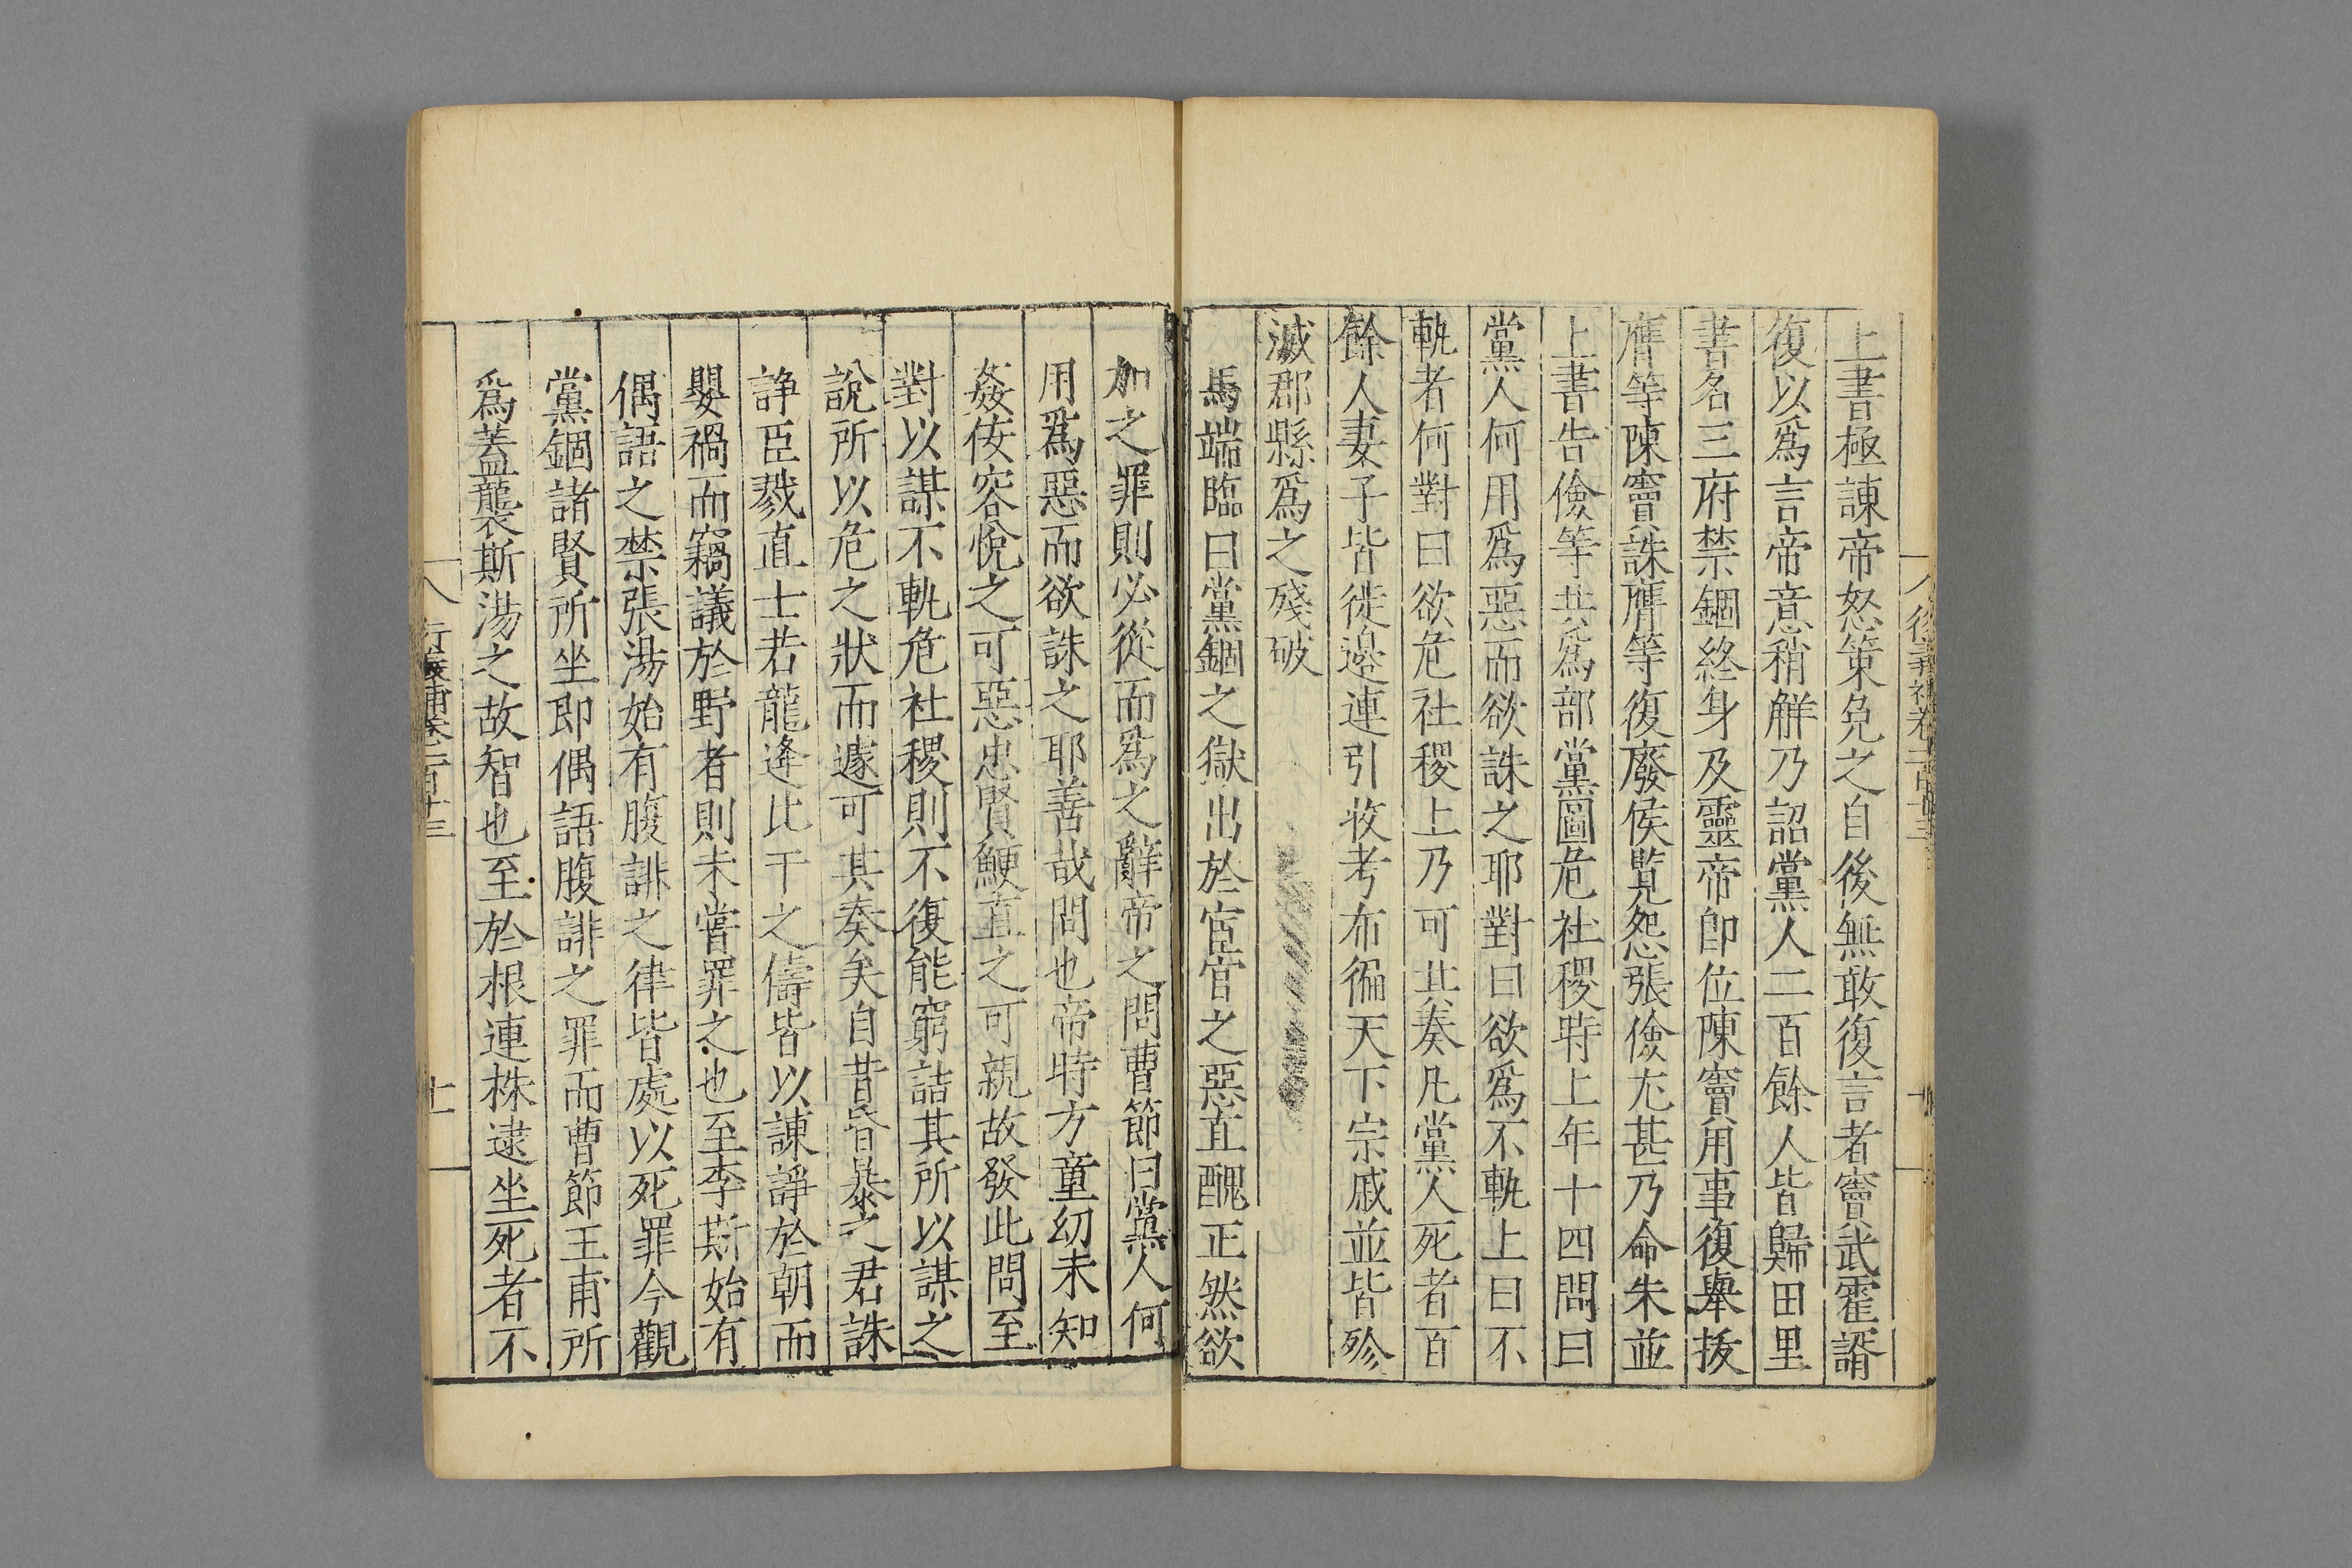 上書極諫帝怒策免之自後無敢復言者竇武霍諝
復以爲言帝意稍觧乃詔黨人二百餘人皆歸田里
書名三府禁錮終身及靈帝即位陳竇用事復舉拔
膺等陳竇誅膺等復廢侯覽怨張儉尤甚乃命朱並
上書告儉等共爲部黨圖危社稷時上年十四問曰
黨人何用爲惡而欲誅之耶對曰欲爲不軌上曰不
軌者何對曰欲危社稷上乃可其奏凡黨人死者百
餘人妻子皆徙邉連引收考布徧天下宗戚並皆殄
滅郡縣爲之殘破
馬端臨曰黨錮之獄出於宦官之惡直醜正然欲
加之罪則必從而爲之辭帝之問曹節曰黨人何
用爲惡而欲誅之耶善哉問也帝時方童幼未知
姦佞容悅之可惡忠賢鯁直之可親故發此問至
對以謀不軌危社稷則不復能窮詰其所以謀之
說所以危之狀而遽可其奏矣自昔昏暴之君誅
諍臣戮直士若龍逄比干之儔皆以諫諍於朝而
嬰禍而竊議於野者則未嘗罪之也至李斯始有
偶語之禁張湯始有腹誹之律皆處以死罪今觀
黨錮諸賢所坐即偶語腹誹之罪而曹節王甫所
爲蓋襲斯湯之故智也至於根連株逮坐死者不